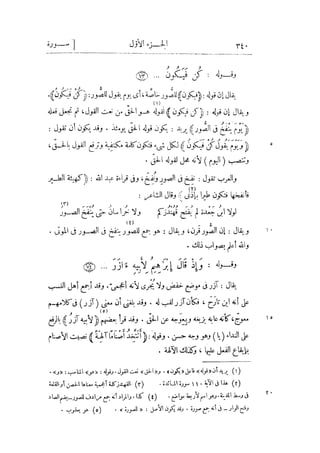 ٣٤٠ الجزء الأوّل [ سورة
وقوله : كُن فَيَكُونُ ... (٧٣)
يقال إن قوله : ﴿فيكون﴾ للصُّور خاصّة، أى يوم يقول للصُّور : ﴿كُنْ فَيَكُونُ﴾.
ويقال إن قوله : ﴿كن فيكون﴾ لقوله هو الحقّ من نعت القول، ثم تجعل فعله (١)
﴿يَوْمَ يُنْفَخُ فِى الصُّورِ﴾ يريد : يكون قوله الحق يومئذ . وقد يكون أن تقول :
٥ ﴿وَيَوْمَ يَقُولُ كُنْ فَيَكُونُ﴾ لكل شىء فتكون كلمة مكتفية وترفع القول بالحقّ،
وتنصب ( اليوم ) لأنه محل لقوله الحق .
والعرب تقول : نفخ فى الصور ونُفِخَ، وفى قراءة عبد الله : (كهيئة الطير
فأنفخها فتكون طيرا بِإِذْنِى) (٢) وقال الشاعر :
لولا ابن جعدة لم يُفتح قُهُنْدُزُكم (٣) ولا خراسان حتى يُنْفَخَ الصور
١٠ ويقال : إن الصُّور قرن، ويقال : هو جمع للصور ينفخ فى الصور فى الموتى . (٤)
والله أعلم بصواب ذلك .
وقوله : وَإِذْ قَالَ إِبْرَٰهِيمُ لِأَبِيهِ ءَازَرَ ... (٧٤)
يقال : آزر فى موضع خفض ولا يُجرى لأنه أعجمىّ. وقد أجمع أهل النسب
على أنه ابن تارَح، فكأن آزر لقب له . وقد بلغنى أن معنى (آزر) فى كلامهم
١٥ معوجّ، كأنه عابه بزيغه وبعِوجه عن الحقّ . وقد قرأ بعضهم ﴿لأبيه آزرُ﴾ بالرفع (٥)
على النداء (يا) وهو وجه حسن . وقوله : ﴿أَتَتَّخِذُ أَصْنَامًا آلِهَةً﴾ نصبت الأصنام
بإيقاع الفعل عليها، وكذلك الآلهة .
(١) يريد أن «قوله» فاعل «يكون» . و«الحق» نعت القول . وقوله :
(٢) هذا فى الآية ١١٠ سورة المائدة . (٣) القهندز كلمة أعجمية معناها الحصن أو القلعة
٢٠ فى وسط المدينة . وهو اسم لأربعة مواضع . (٤) كذا . والمراد أنه جمع مرادف للصور ـ بضم الصاد
وفتح الواو ـ فى أنه جمع صورة . وقد يكون الأصل : «للصورة» . (٥) هو يعقوب .